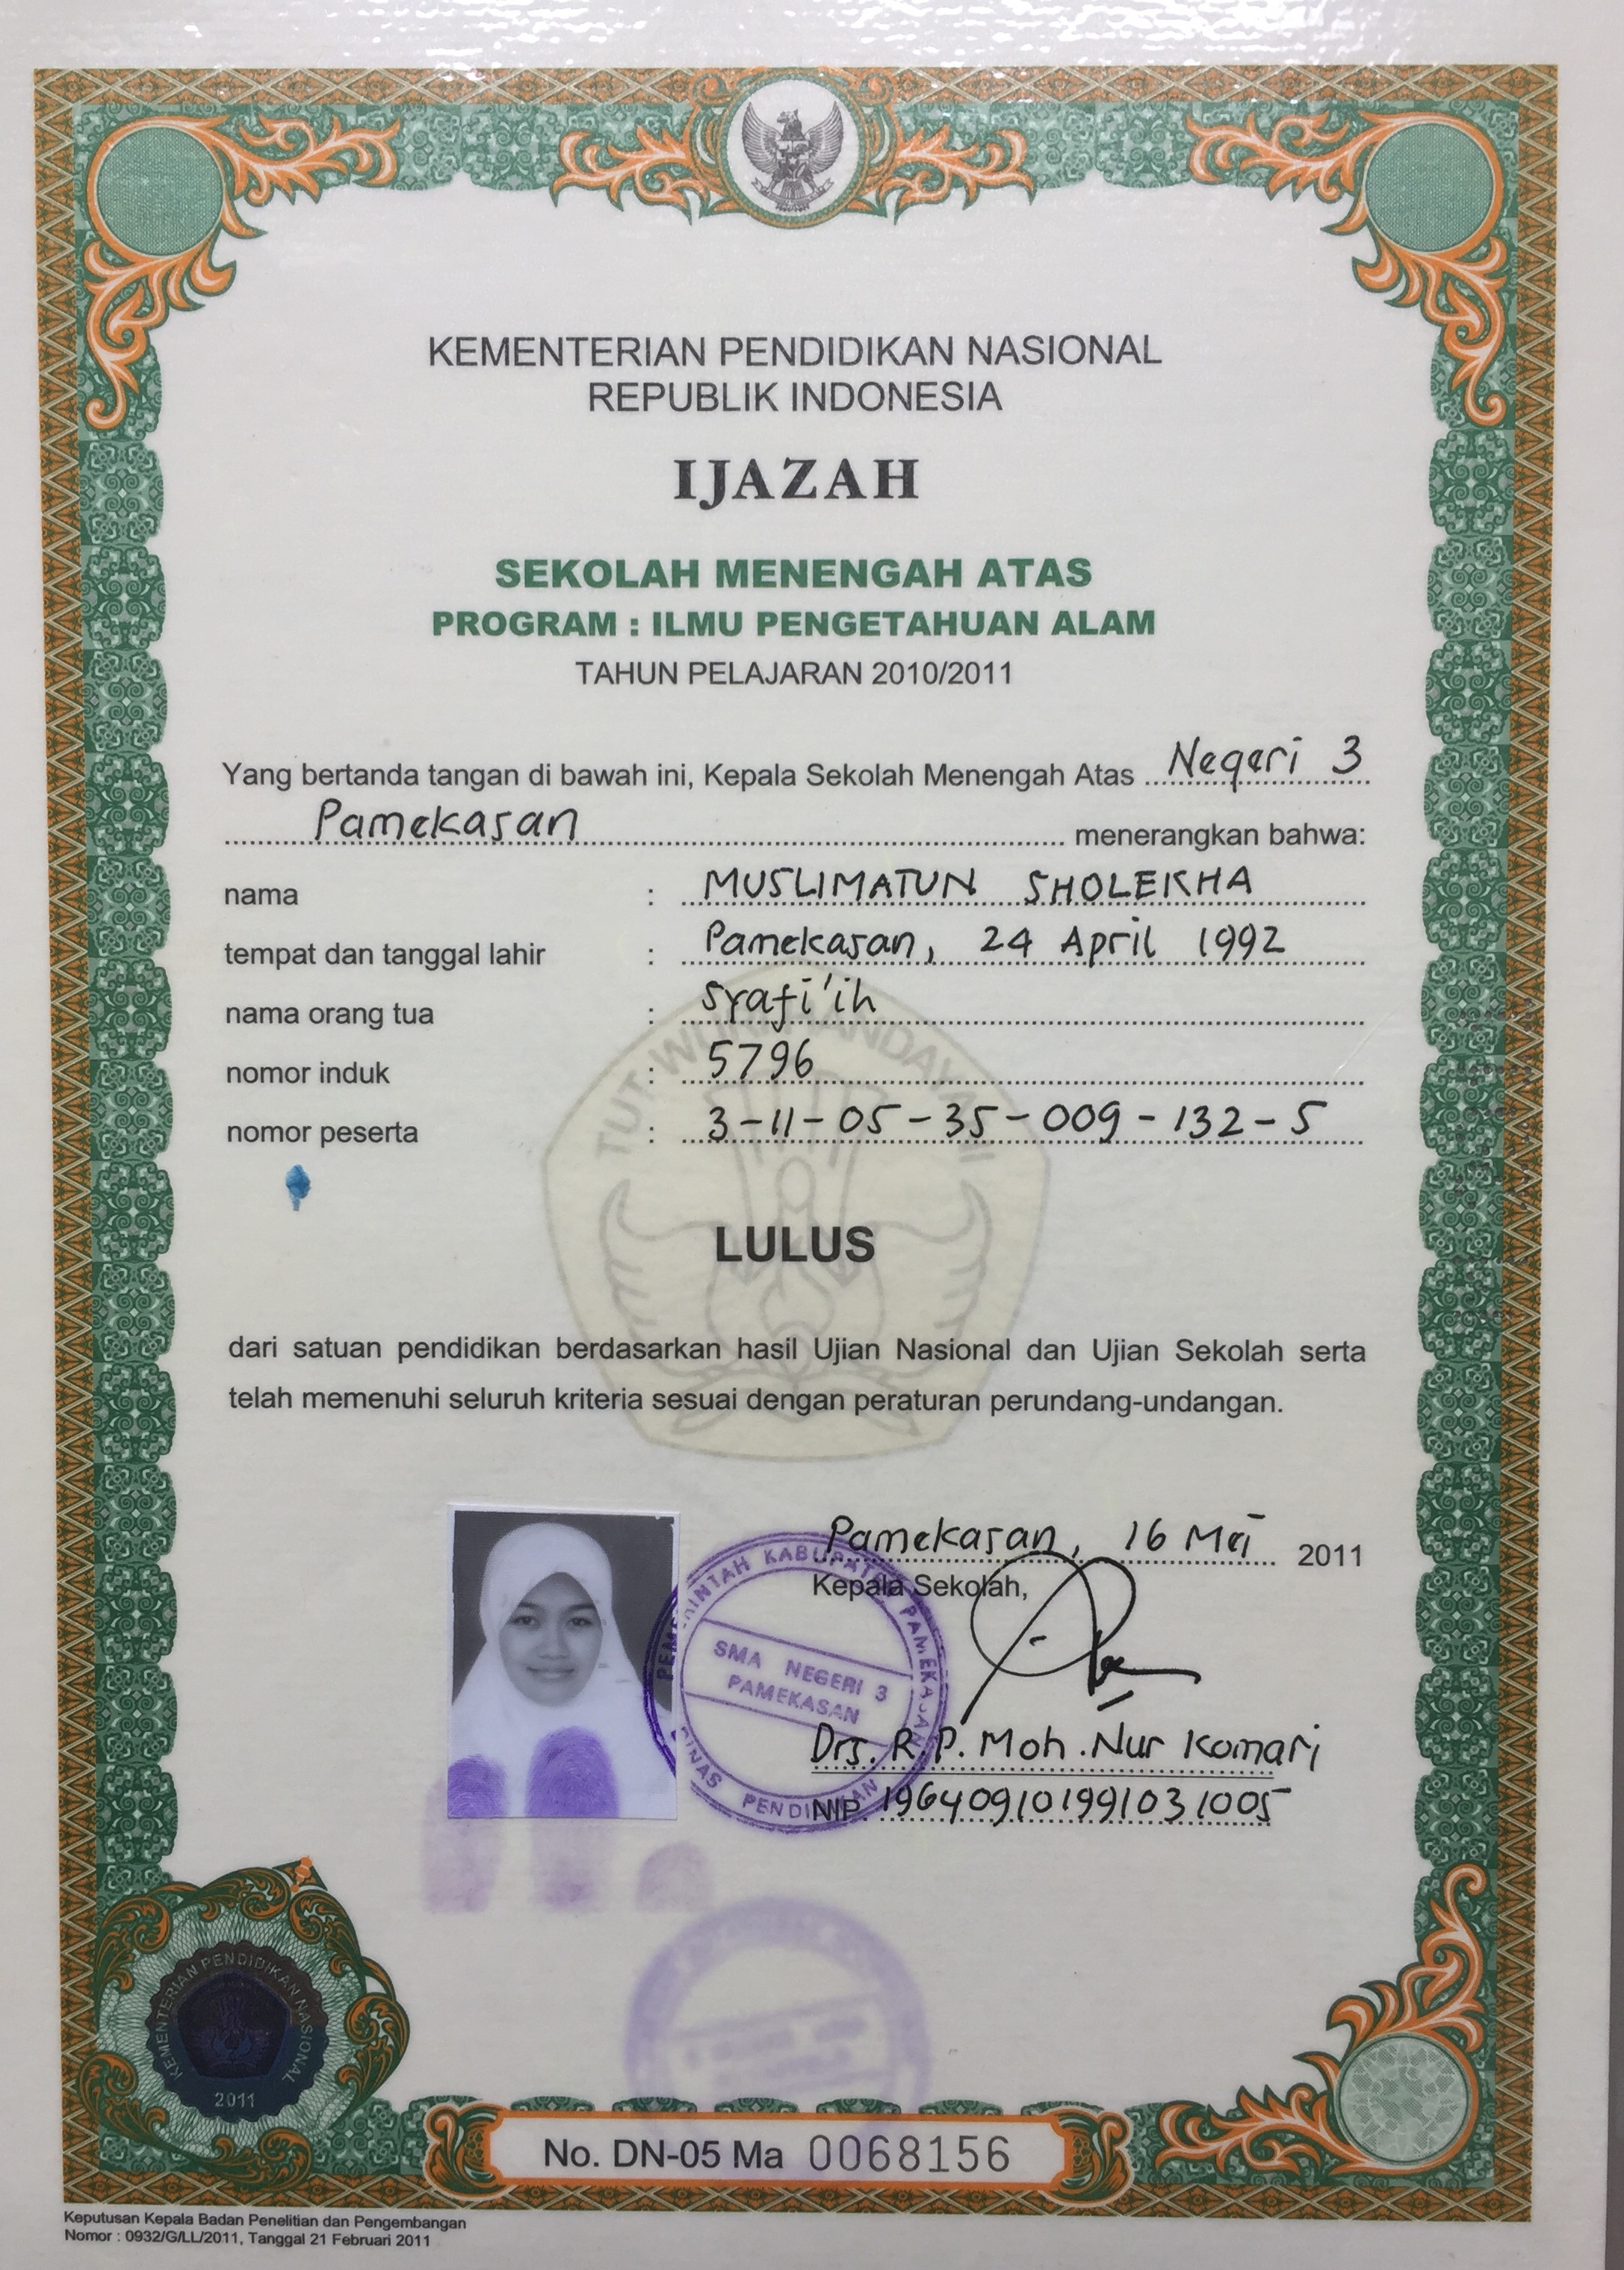 KEMENTERIAN PENDIDIKAN NASIONAL
REPUBLIK INDONESIA
IJAZAH
SEKOLAH MENENGAH ATAS
PROGRAM : ILMU PENGETAHUAN ALAM
TAHUN PELAJARAN 2010/2011
Yang bertanda tangan di bawah ini, Kepala Sekolah Menengah Atas Negeri 3
Pamekasan menerangkan bahwa:
nama : MUSLIMATUN SHOLEKHA
tempat dan tanggal lahir : Pamekasan, 24 April 1992
nama orang tua : Syafi'ih
nomor induk : 5796
nomor peserta : 3-11-05-35-009-132-5
TUT WURI HANDAYANI
LULUS
dari satuan pendidikan berdasarkan hasil Ujian Nasional dan Ujian Sekolah serta
telah memenuhi seluruh kriteria sesuai dengan peraturan perundang-undangan.
Pamekasan, 16 Mei 2011
Kepala Sekolah,
PEMERINTAH KABUPATEN PAMEKASAN
SMA NEGERI 3
PAMEKASAN
DINAS PENDIDIKAN
Drs. R.P. Moh. Nur Komari
NIP. 196409101991031005
KEMENTERIAN PENDIDIKAN NASIONAL
2011
No. DN-05 Ma 0068156
Keputusan Kepala Badan Penelitian dan Pengembangan
Nomor : 0932/G/LL/2011, Tanggal 21 Februari 2011